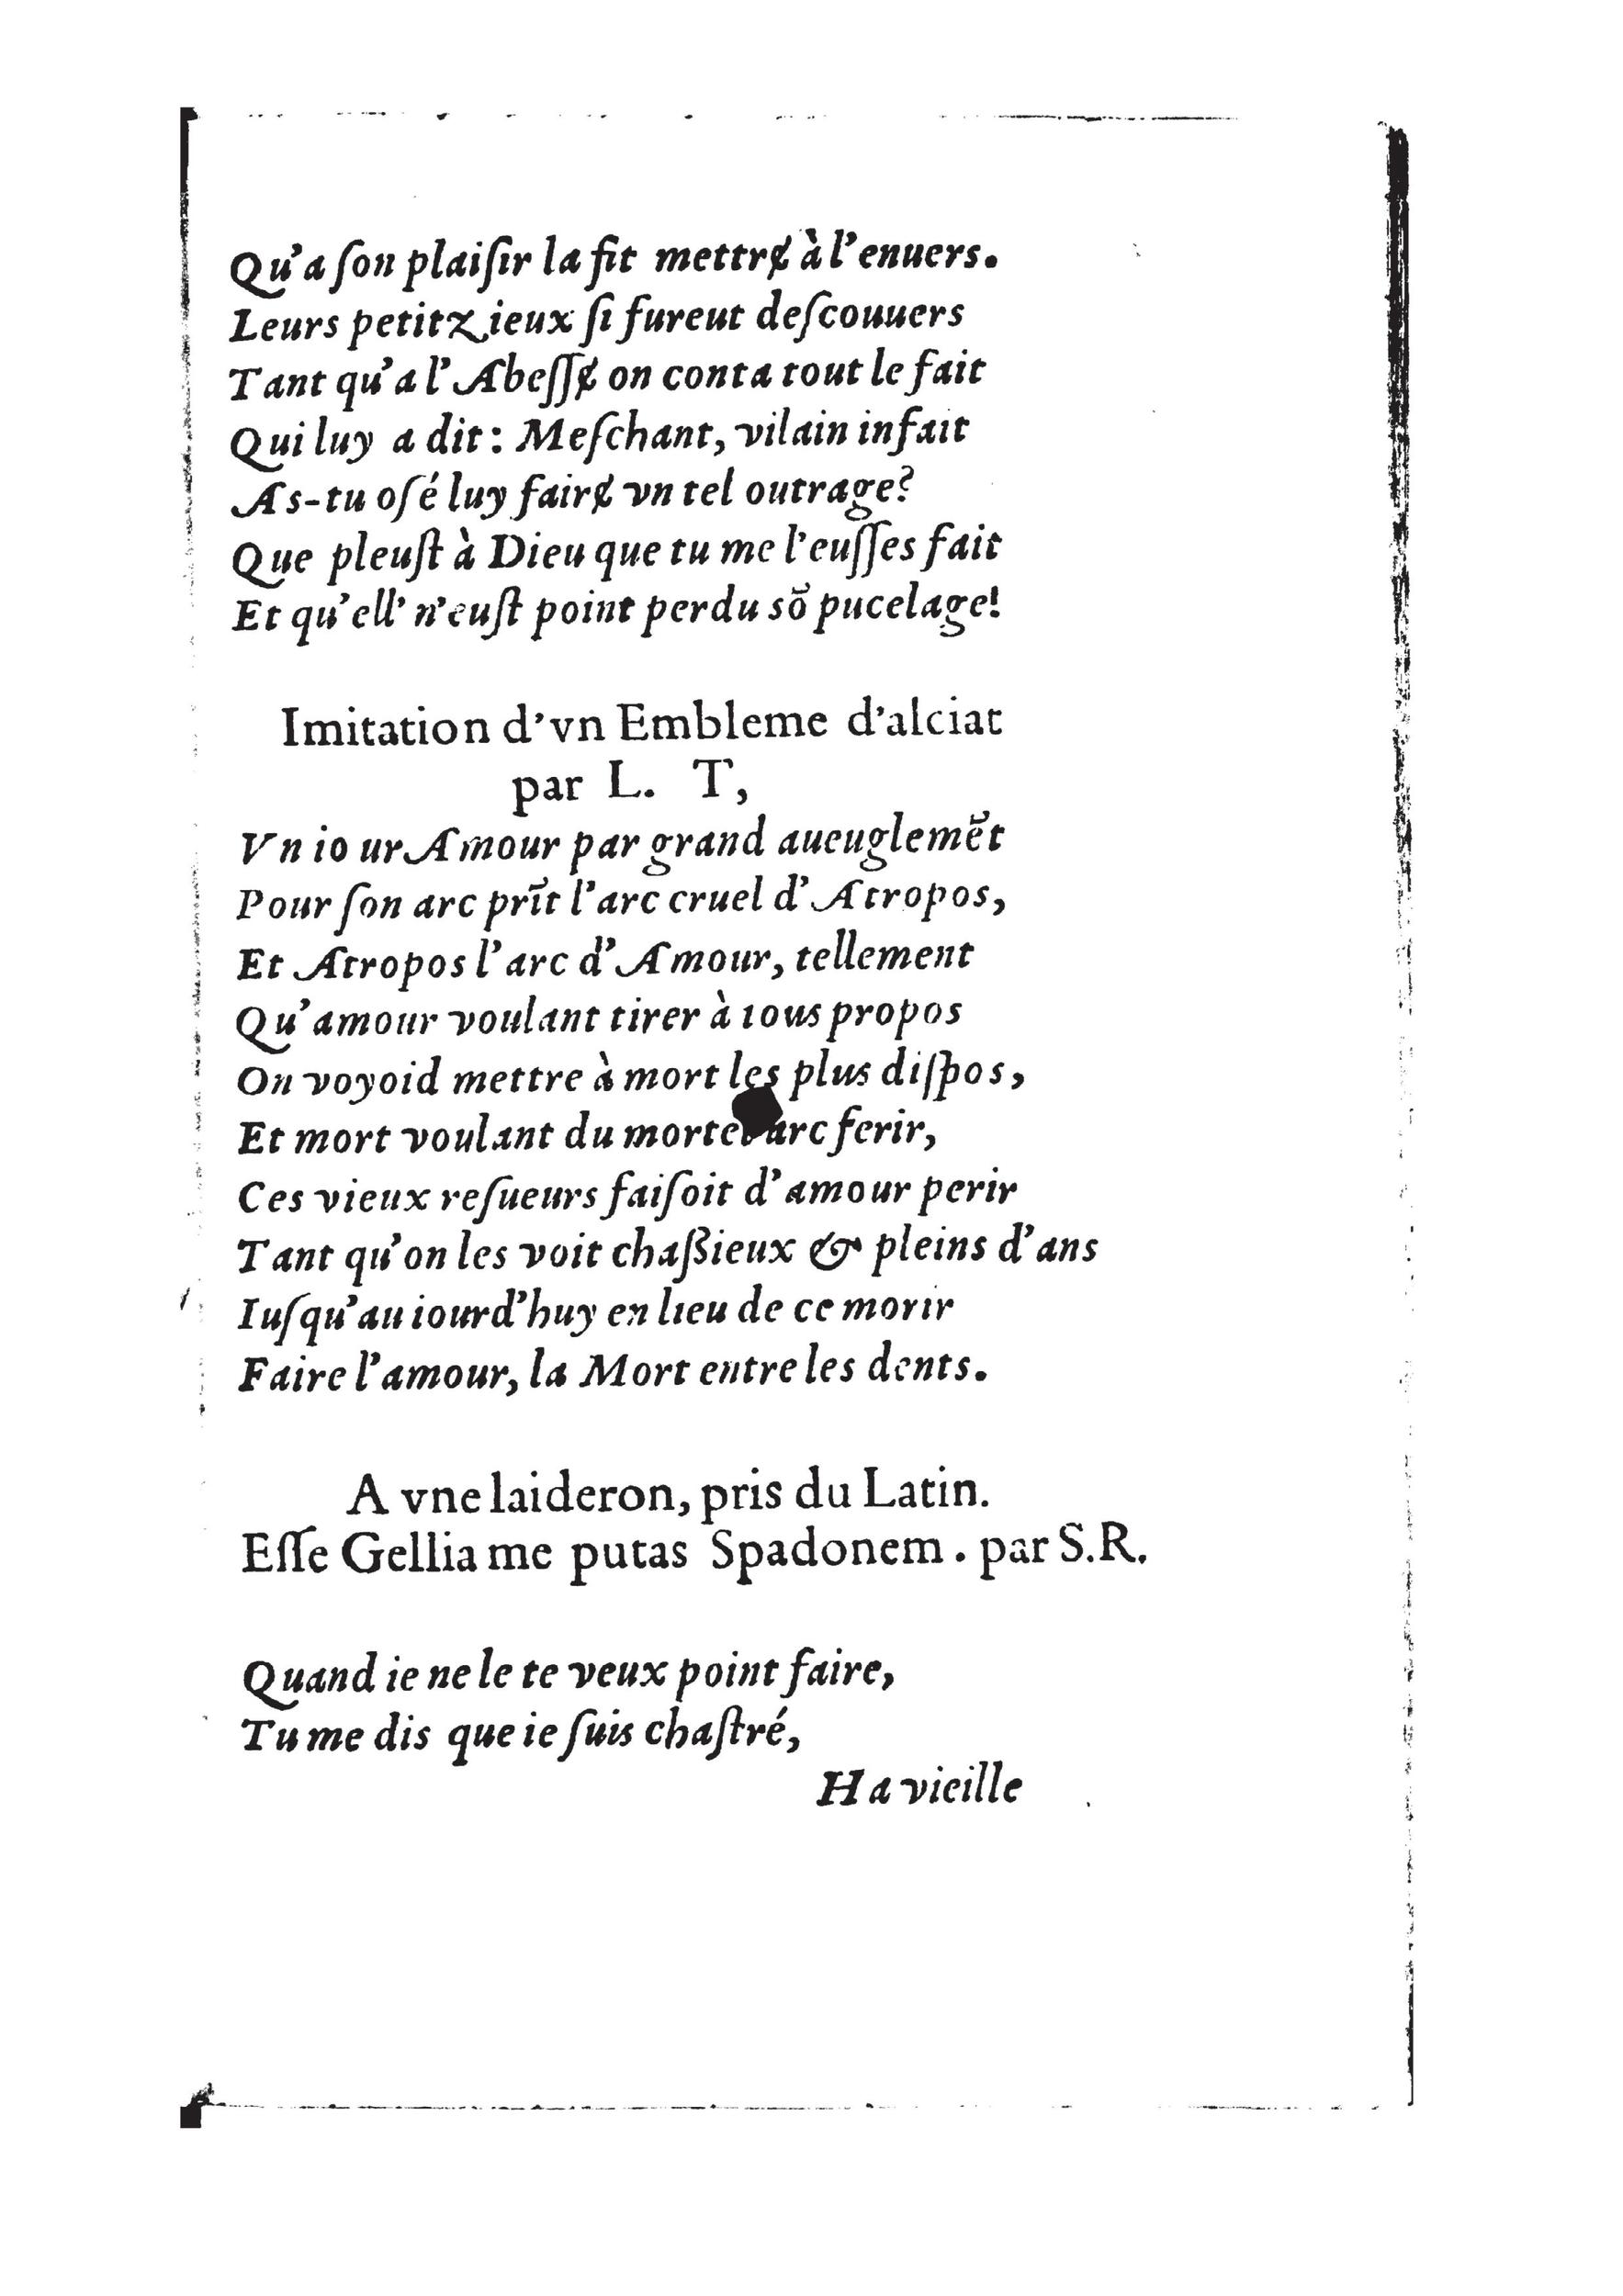 Qu'a ſon plaiſir la fit mettrɇ à l'enuers.
Leurs petitz ieux ſi fureut deſcouuers
Tant qu'a l'Abeſſɇ on conta tout le fait
Qui luy a dit: Meſchant, vilain infait
As-tu oſé luy fairɇ vn tel outrage?
Que pleuſt à Dieu que tu me l'euſſes fait
Et qu'ell' n'euſt point perdu sõ pucelage!
Imitation d'vn Embleme d'alciat
par L. T,
Vn io ur Amour par grand aueuglemẽt
Pour ſon arc prĩt l'arc cruel d'Atropos,
Et Atropos l'arc d'Amour, tellement
Qu'amour voulant tirer à tous propos
On voyoid mettre à mort les plus diſpos,
Et mort voulant du mortel arc ferir,
Ces vieux reſueurs faiſoit d'amour perir
Tant qu'on les voit chaßieux & pleins d'ans
Iuſqu'au iourd'huy en lieu de ce morir
Faire l'amour, la Mort entre les dents.
A vne laideron, pris du Latin.
Eſſe Gellia me putas Spadonem. par S.R.
Quand ie ne le te veux point faire,
Tu me dis que ie ſuis chaſtré,
Ha vieille